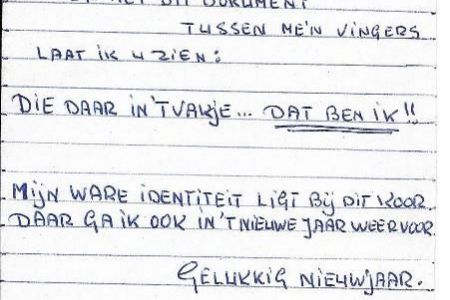 MET DIT DOKUMENT
TUSSEN ME'N VINGERS
LAAT IK U ZIEN:
DIE DAAR IN 'T VAKJE... DAT BEN IK!!
MIJN WARE IDENTITEIT LIGT BIJ DIT KOOR
DAAR GA IK OOK IN 'T NIEUWE JAAR WEER VOOR
GELUKKIG NIEUWJAAR.